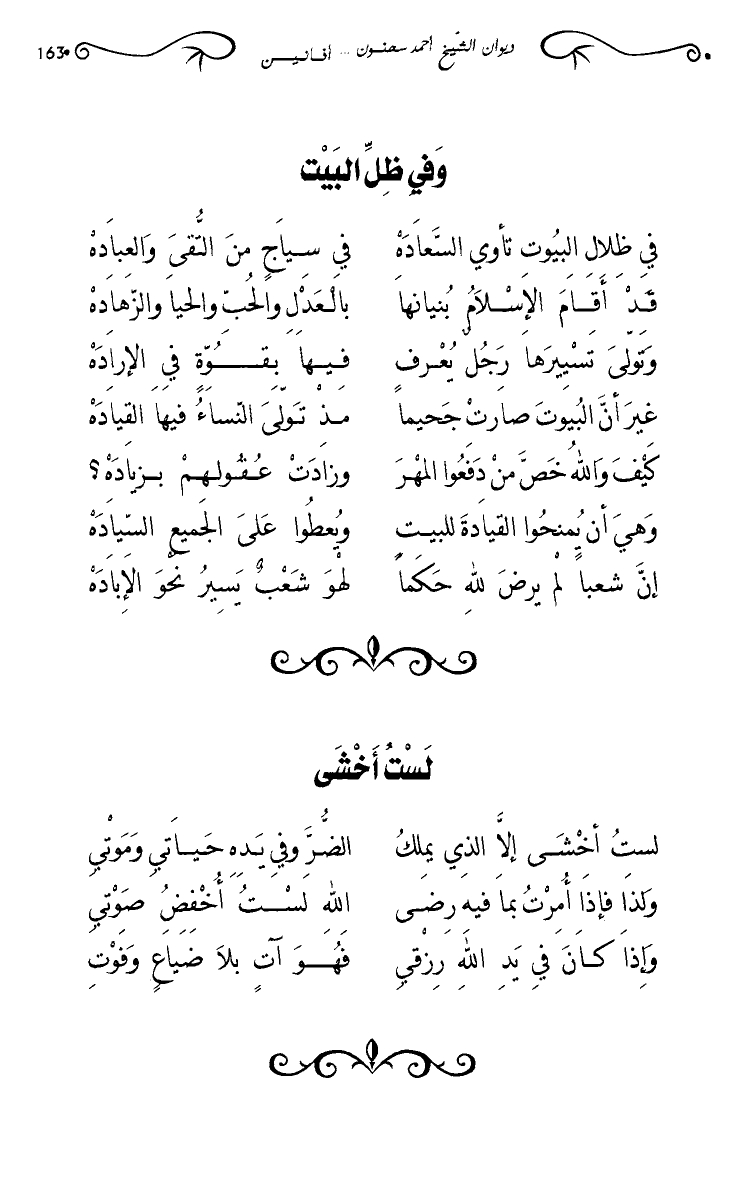 ديوان الشيخ احمد سحنون ... أفانين 163
وَفي ظِلِّ البَيْت
في ظِلالِ البيُوتِ تأوي السَّعادَهْ في سِياجٍ منَ التُّقىَ وَالعِبادَهْ
قَدْ أَقامَ الإِسْلاَمُ بُنيانها بالْعَدْلِ والحُبِّ والحيا والزّهادَهْ
وَتولّىَ تسْيِيرَها رَجُلٌ يُعْرف فيها بِقُوّةٍ فيِ الإرادَهْ
غيرَ أنَّ البُيوتَ صارتْ جَحيما مذْ تَولّىَ النّساءُ فيها القيادَهْ
كَيْفَ وَاللهُ خَصَّ منْ دَفَعُوا المهْرَ وزادَتْ عُقُولهمْ بزيادَهْ؟
وَهيَ أن يُمنحُوا القيادَةَ للبيتِ ويُعطوا عَلىَ الجَميعِ السّيادَهْ
إنَّ شعباً لمْ يرضَ للهِ حَكَماً لهْوَ شَعْبٌ يَسيرُ نحْوَ الإبادَهْ
لَسْتُ أَخْشَى
لستُ أخْشَى إلاَّ الذي يملكُ الضرَّ وفي يَدِهِ حَيَاتي وَمَوْتي
ولذا فإذا أُمرْتُ بما فيه رِضى اللهِ لسْتُ أُخْفِضُ صَوْتي
وَإذا كانَ في يَدِ اللهِ رِزْقي فَهُوَ آتٍ بلاَ ضياعٍ وَفوْتِ